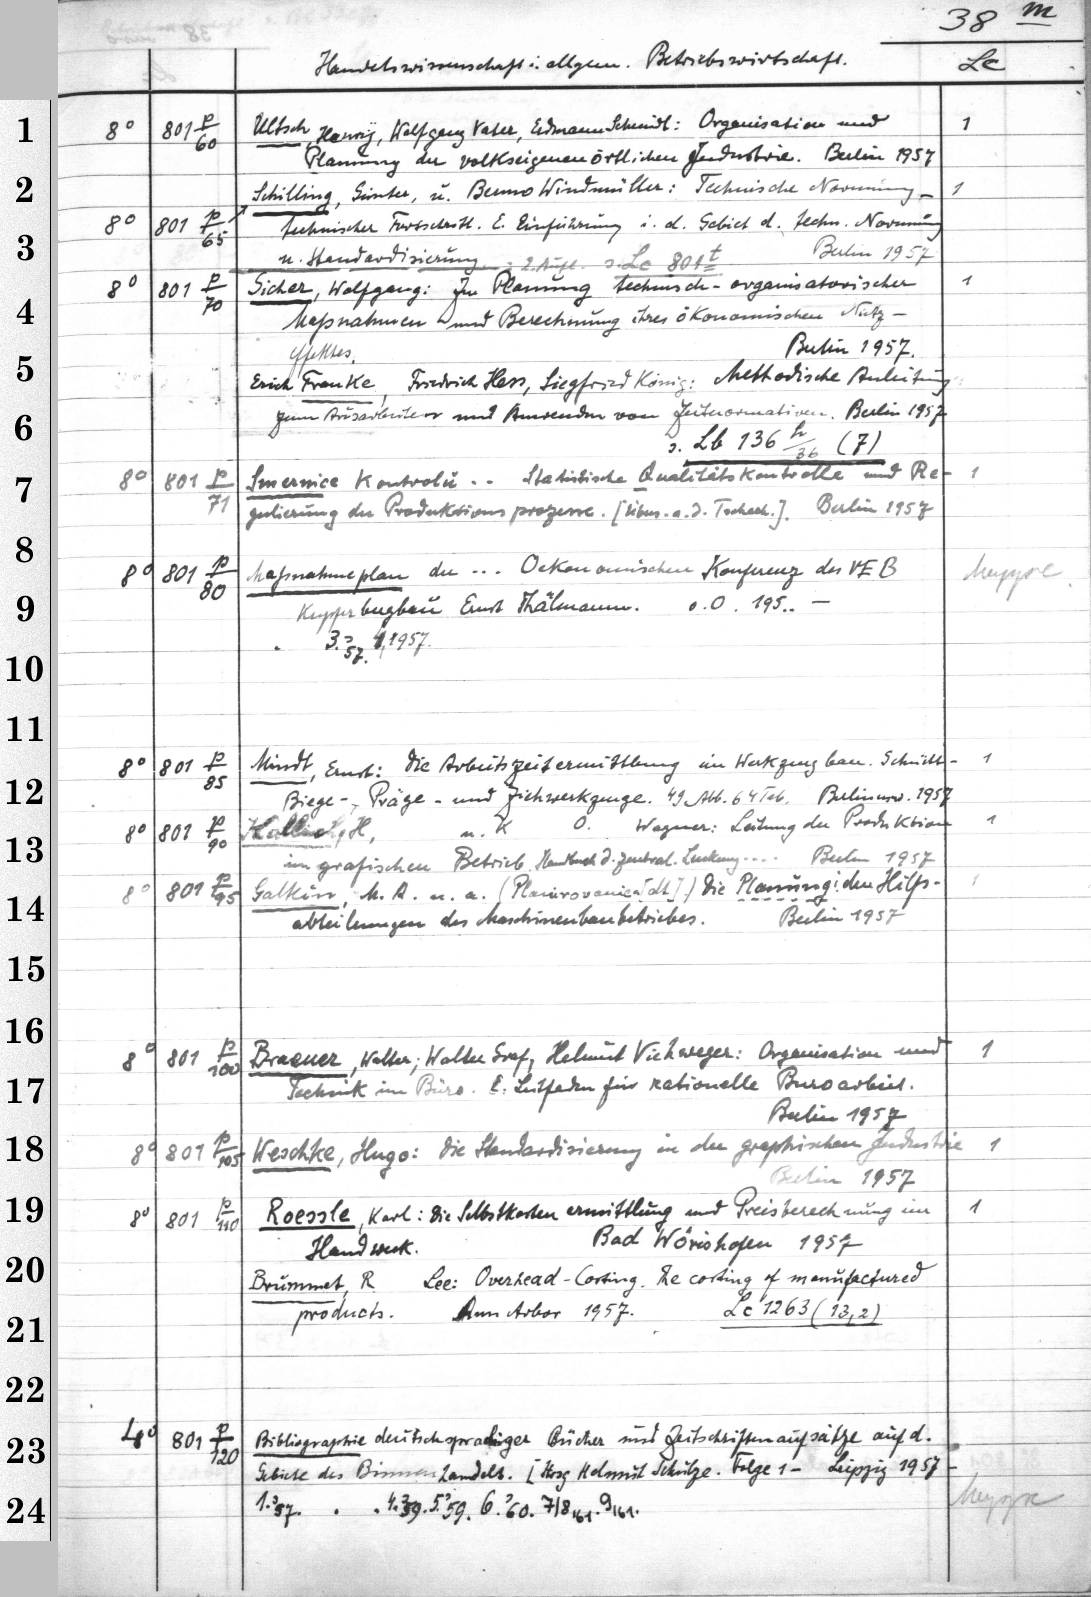 38 m
Handelswissenschaft i. allgem. Betriebswirtschaft. Lc
1 8° 801 p/60 Ultsch, Henrij, Wolfgang Vater, Erdmann Schmidt: Organisation und 1
Planung der volkseigenen örtlichen Industrie. Berlin 1957
2 Schilling, Günter, u. Benno Windmüller: Technische Normung – 1
8° 801 p/65 technischer Fortschritt. E. Einführung i. d. Gebiet d. techn. Normung
3 u. Standardisierung. 2. Aufl. s. Lc 801 t Berlin 1957
8° 801 p/70 Sicher, Wolfgang: Zu Planung technisch-organisatorischer 1
4 Maßnahmen und Berechnung ihres ökonomischen Nutz-
effektes. Berlin 1957.
5 Erich Franke, Friedrich Hess, Siegfried König: Methodische Anleitung
6 zum Ausarbeiten und Anwenden von Zeitnormativen. Berlin 1957
s. Lb 136 h/36 (7)
7 8° 801 p/71 Smernice Kontrolú .. Statistische Qualitätskontrolle und Re- 1
gulierung der Produktionsprozesse. [Übers. a. d. Tschech.]. Berlin 1957
8
8° 801 p/80 Maßnahmeplan der ... Oekonomischen Konferenz des VEB
9 Kupferbergbau Ernst Thälmann. o.O. 195.. –
3. 57. 4, 1957.
10
11
8° 801 p/85 Mindt, Ernst: Die Arbeitszeitermittlung im Werkzeugbau. Schnitt- 1
12 Biege-, Präge- und Ziehwerkzeuge. 49 Abb. 64 Tab. Berlin usw. 1957
8° 801 p/90 H., u. K O. Wagner: Leitung der Produktion 1
13 im grafischen Betrieb. Handbuch d. zentral. Lenkung .... Berlin 1957
8° 801 p/95 Galkin, M. A. u. a. (Planirovanie [dt.]) Die Planung der Hilfs- 1
14 abteilungen des Maschinenbaubetriebes. Berlin 1957
15
16
8° 801 p/100 Braeuer, Walter, Walter Graf, Helmut Viehweger: Organisation und 1
17 Technik im Büro. E. Leitfaden für rationelle Büroarbeit.
Berlin 1957
18 8° 801 p/105 Weschke, Hugo: Die Standardisierung in der graphischen Industrie 1
Berlin 1957
19 8° 801 p/110 Roessle, Karl: Die Selbstkostenermittlung und Preisberechnung im 1
Handwerk. Bad Wörishofen 1957
20 Brummet, R. Lee: Overhead-Costing. The costing of manufactured
21 products. Ann Arbor 1957. Lc 1263 (13,2)
22
4° 801 p/120 Bibliographie deutschsprachiger Bücher und Zeitschriftenaufsätze auf d.
23 Gebiete des Binnenhandels. [Hrsg Helmut Schulze. Folge 1 – Leipzig 1957 –
24 1. 57. . . 4. 59. 5. 59. 6. 60. 7/8 161. 9 161.